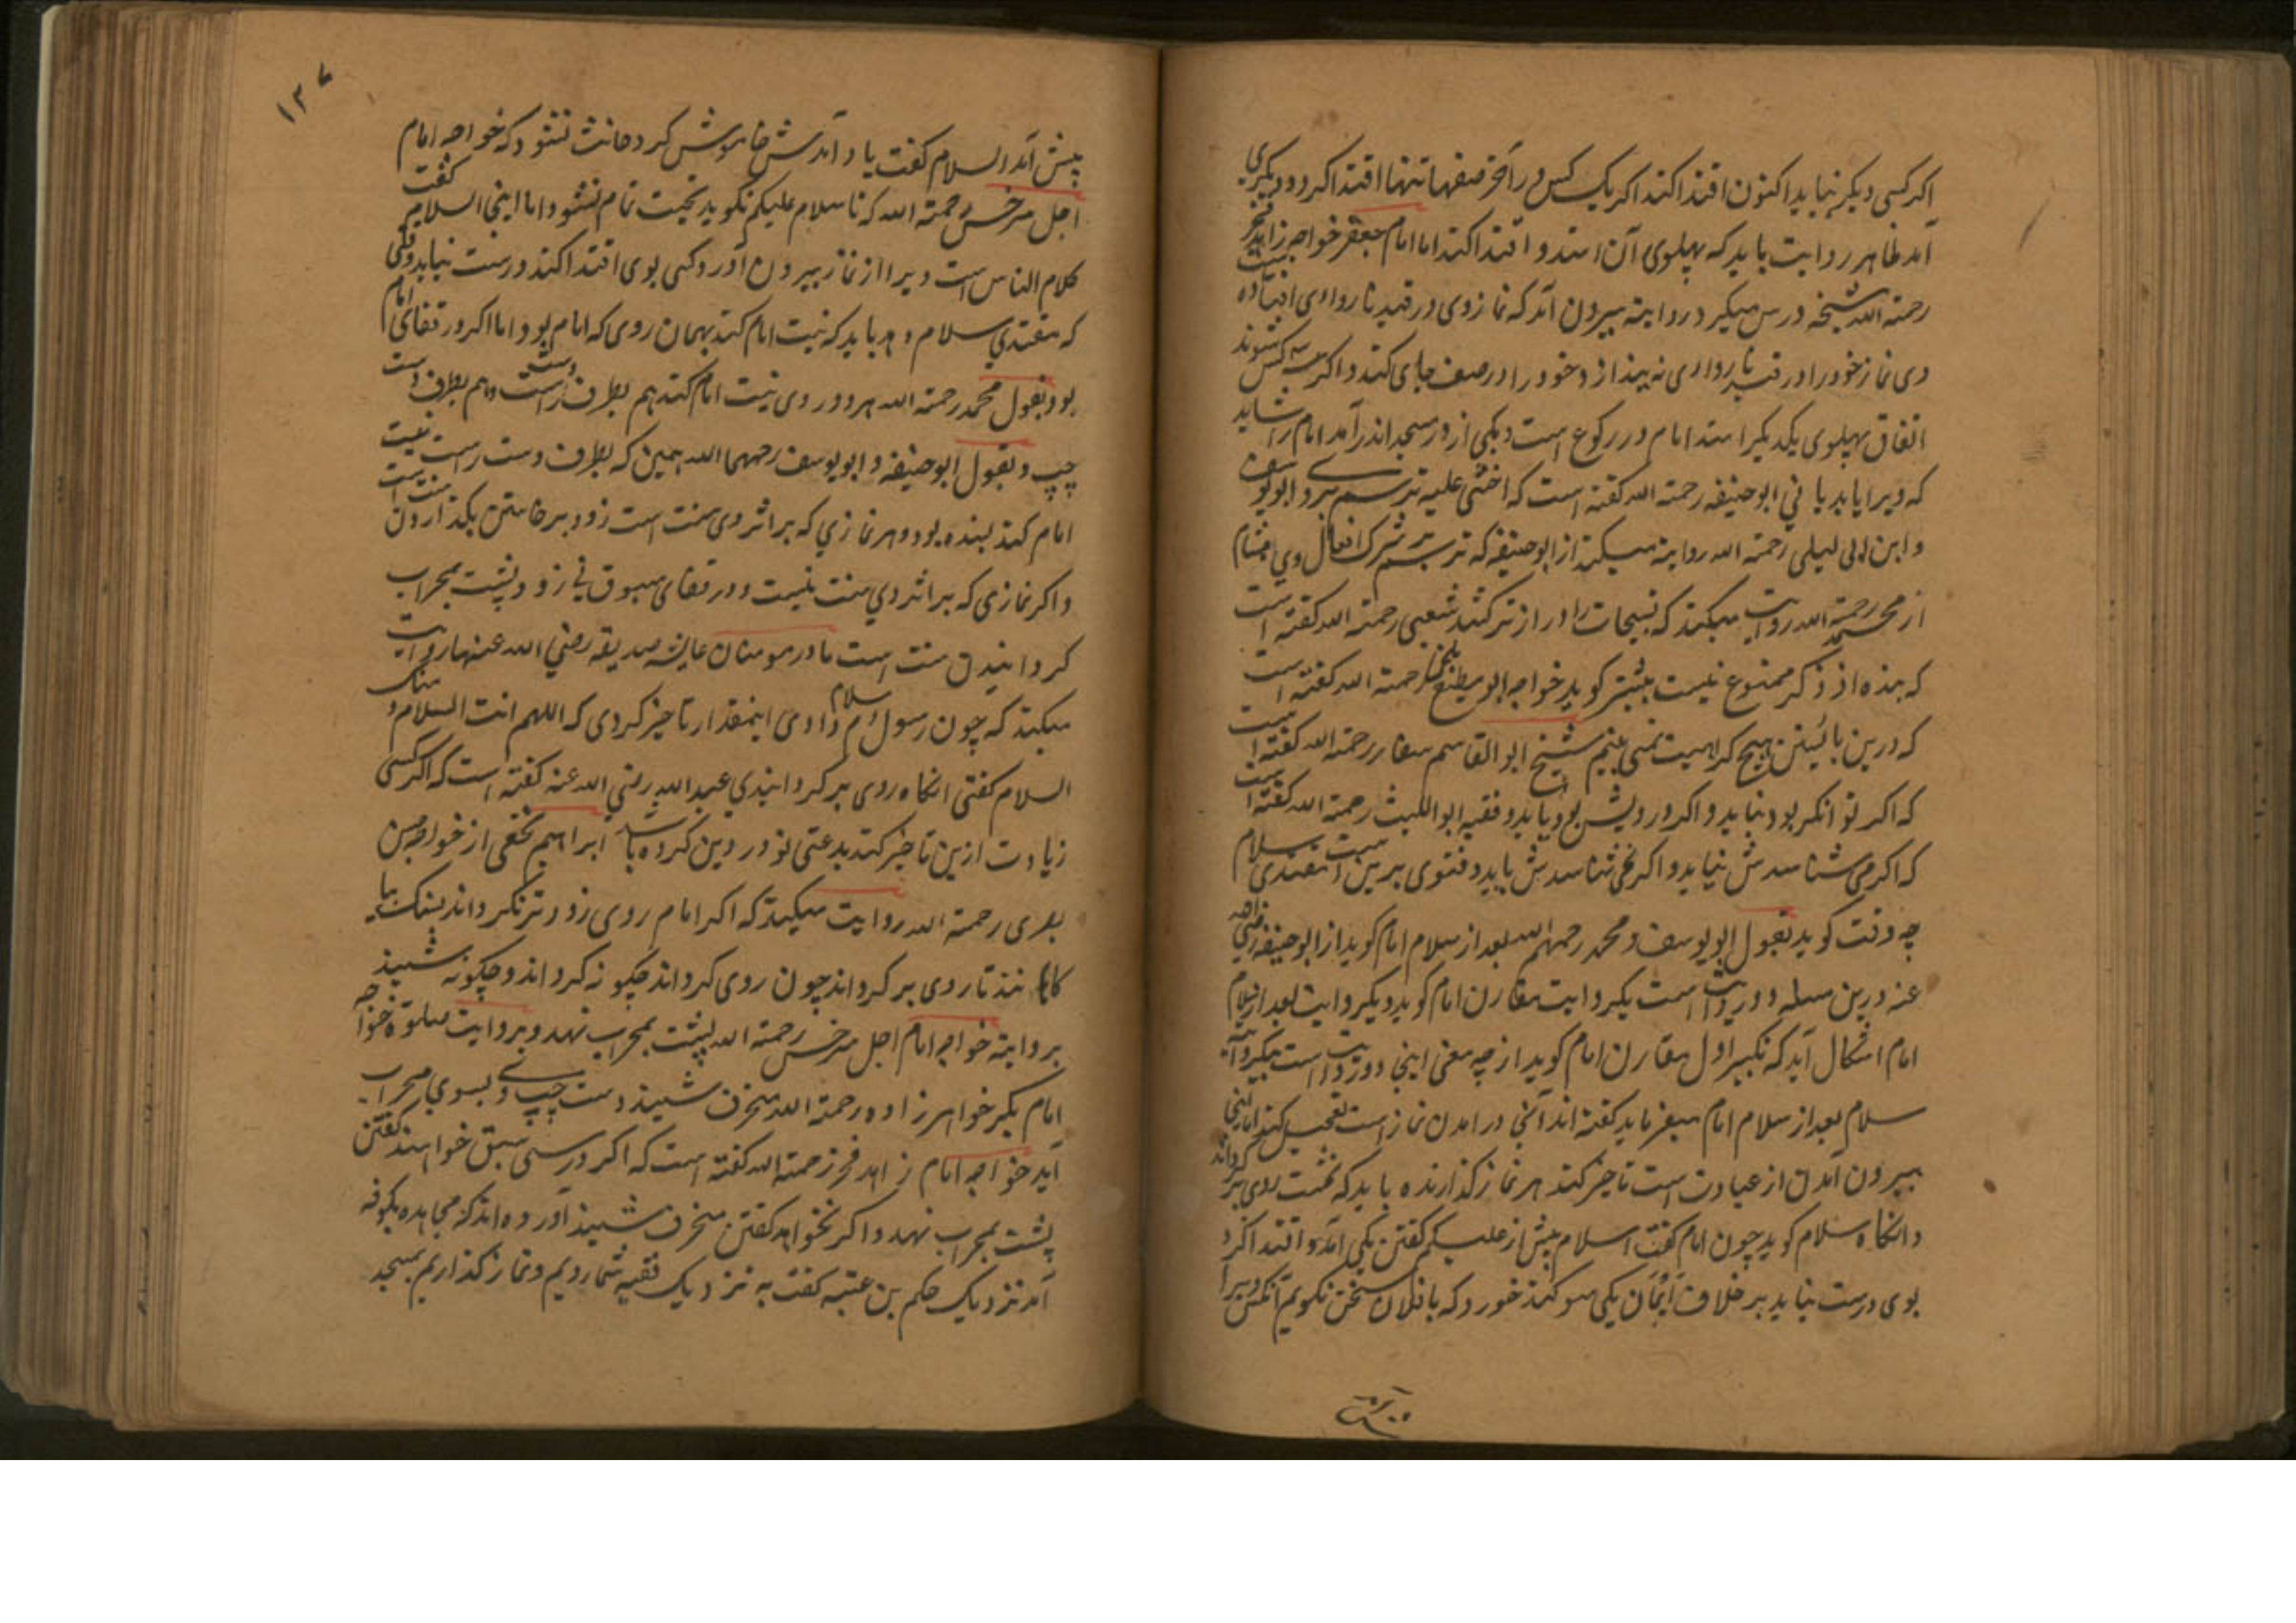 اکر کسی دیکر نیاید اکنون اقتدا کند اکر یک کس در آخر صفها تنها اقتدا کرد و دیکری
آمد ظاهر روایت باید که پهلوی آن استد و اقتدا کند اما امام جعفر خواجه زاهد
رحمته الله شیخه درس میکیرد روایته بیرون آمد که نماز وی در قید ناروا وی افتاده
وی نماز خود را در قید ناروا وی نه بیندازد خود را در صف جای کند و اکر سه کس شوند
اتفاق پهلوی یکدیکر استد امام در رکوع است و یکی از در مسجد اندر آمد امام را شاید
که ویرا یابد یا نی ابو حنیفه رحمته الله کفته است که اخشی علیه ترسم برو ابو یوسف
و ابن ابی لیلی رحمته الله روایته میکند از ابو حنیفه که ترسم شرک افعال وی هشام
از محمد رحمته الله روایت میکند که تسبیحات را دراز تر کند شعبی رحمته الله کفته است
که بنده از ذکر ممنوع نیست بیشتر کوید خواجه ابو مطیع بلخی رحمته الله کفته است
که درین بائیستن هیچ کراهیت نمی بینم شیخ ابو القاسم صفار رحمته الله کفته است
که اکر توانکر بود نباید و اکر درویش بود باید و فقیه ابو اللیث رحمته الله کفته است
که اکر می شناسدش نیاید و اکر نمی شناسدش باید و فتوی برین است مقتدی سلام
چه وقت کوید بقول ابو یوسف و محمد رحمهم الله بعد از سلام امام کوید از ابو حنیفه رضی الله
عنه درین مسله دو روایت است یکی روایت مقارن امام کوید و دیکر روایت بعد از سلام
امام اشکال آید که تکبیر اول مقارن امام کوید از چه معنی اینجا دو روایت است بیکروایته
سلام بعد از سلام امام میفرماید کفته اند آنجا در امدن نماز است تعجیل کند اما اینجا
بیرون آمدن از عبادت است تاخیر کند هر نماز کذارنده باید که نخست روی بکرداند
و انکاه سلام کوید چون امام کفت السلام پیش از علیکم کفتن یکی آمد و اقتدا کرد
بوی درست نیاید بر خلاف ایمان یکی سوکند خورد که با فلان سخن نکویم آنکس ویرا
پیش آمد السلام کفت یاد آمدش خاموش کرد حانث نشود که خواجه امام
اجل سرخسی رحمته الله کفت که تا سلام علیکم نکوید تحیت تمام نشود اما اینجا السلام
کلام الناس است ویرا از نماز بیرون آورد کسی بوی اقتدا کند درست نیاید وقتی
که مقتدی سلام دهد باید که نیت امام کند بهمان روی که امام بود اما اکر در قفای امام
بود بقول محمد رحمته الله هر دو روی نیت امام کند هم بطرف دست راست و هم بطرف دست
چپ و بقول ابو حنیفه و ابو یوسف رحمهما الله همین که بطرف دست راست نیت
امام کند بسنده بود و هر نمازی که بر اثر وی سنت است زود برخاستن بکذاردن سنت است
و اکر نمازی که بر اثر وی سنت نیست و در قفای مسبوق نی زود پشت بمحراب
کردانیدن سنت است مادر مومنان عایشه صدیقه رضی الله عنها روایت
میکند که چون رسول سلام دادی اینمقدار تاخیر کردی که اللهم انت السلام و منک
السلام کفتی انکاه روی بر کردانیدی عبد الله رضی الله عنه کفته است که اکر کسی
زیادت ازین تاخیر کند بدعتی نو در دین کرده باشد ابراهیم نخعی از خواجه حسن
بصری رحمته الله روایت میکند که اکر امام روی زودتر نکرداند بسنک بیا
کا نند تا روی بر کرداند چون روی کرداند چکونه کرداند و چکونه نشیند
بروایته خواجه امام اجل سرخسی رحمته الله پشت بمحراب نهد و بروایت صلوة خواجه
امام بکر خواهر زاده رحمته الله منحرف نشیند دست چپ وی بسوی محراب
آید خواجه امام زاهد فخر رحمته الله کفته است که اکر درسی سبق خواهند کفتن
پشت بمحراب نهد و اکر نخواهد کفتن منحرف نشیند آورده اند که مجاهد بکوفه
آمد نزدیک حکم بن عتبه کفت به نزدیک فقیه شما رویم و نماز کذاریم بمسجد